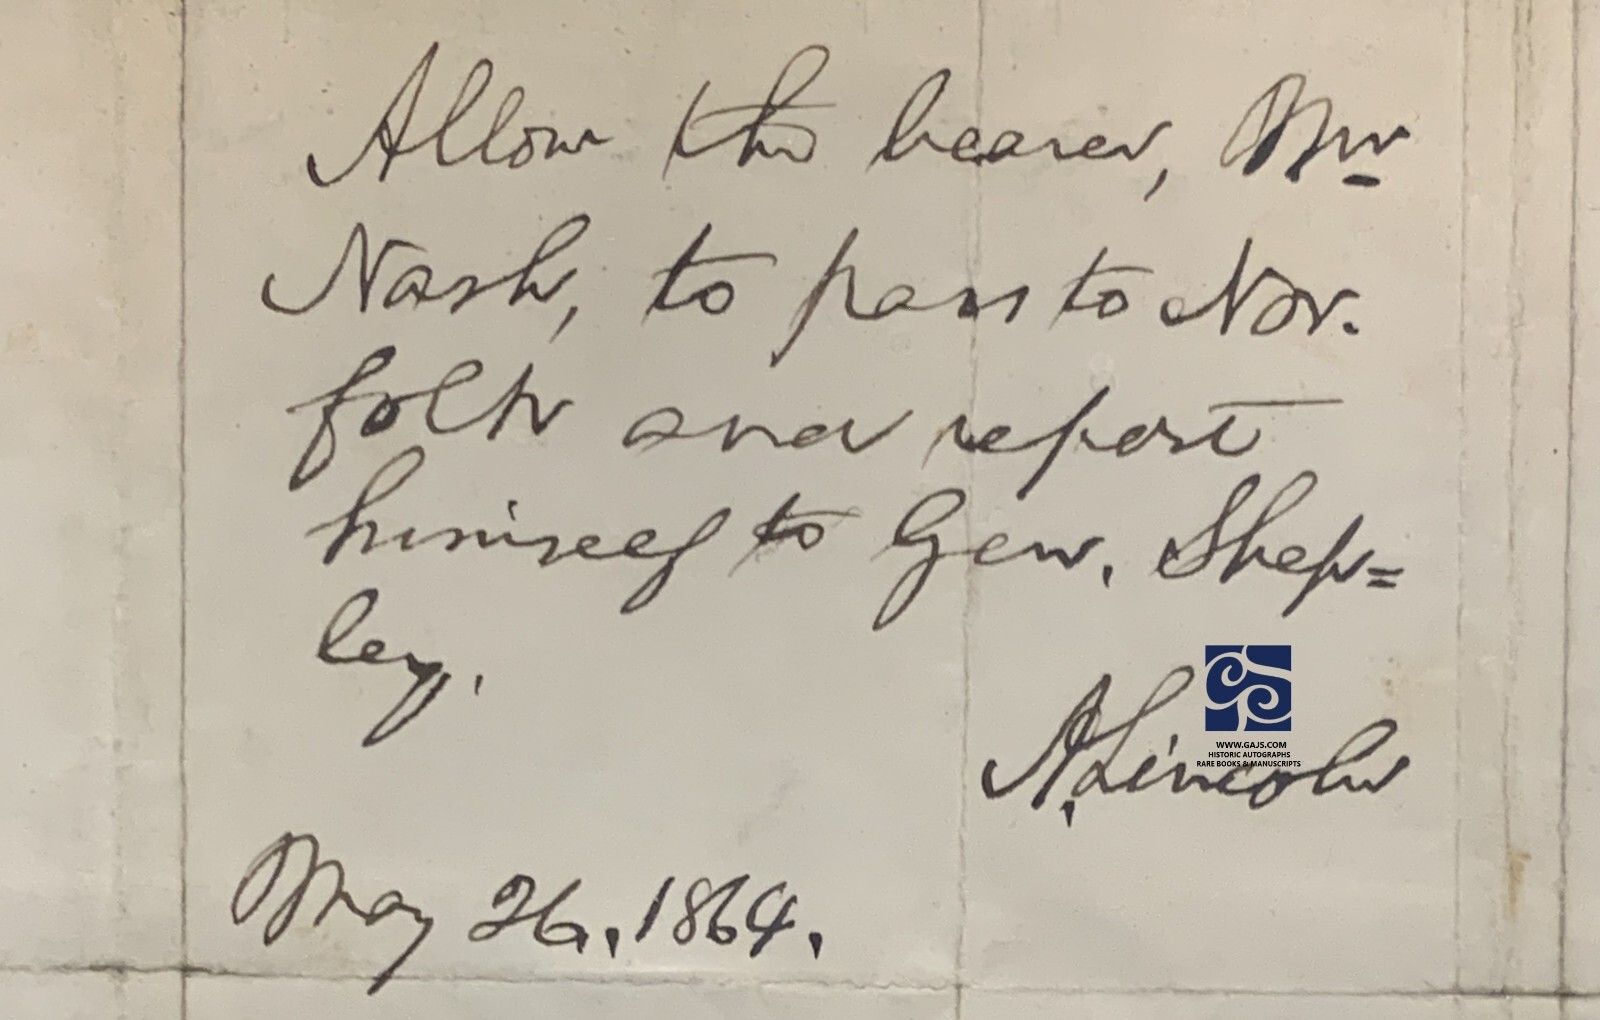 Allow the bearer, Mr
Nash, to pass to Nor.
folk and report
himself to Gen. Shep=
ley.
A. Lincoln
May 26, 1864.
WWW.GAJS.COM
HISTORIC AUTOGRAPHS
RARE BOOKS & MANUSCRIPTS